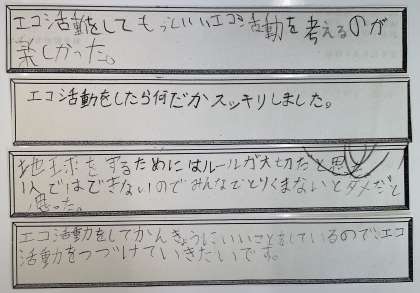 エコ活動をしてもっといいエコ活動を考えるのが
楽しかった。
エコ活動をしたら何だかスッキリしました。
地球をするためにはルールが大切だと思
1人ではできないのでみんなでとりくまないとダメだと
思った。
エコ活動をしてかんきょうにいいことをしているので、エコ
活動をつづけていきたいです。